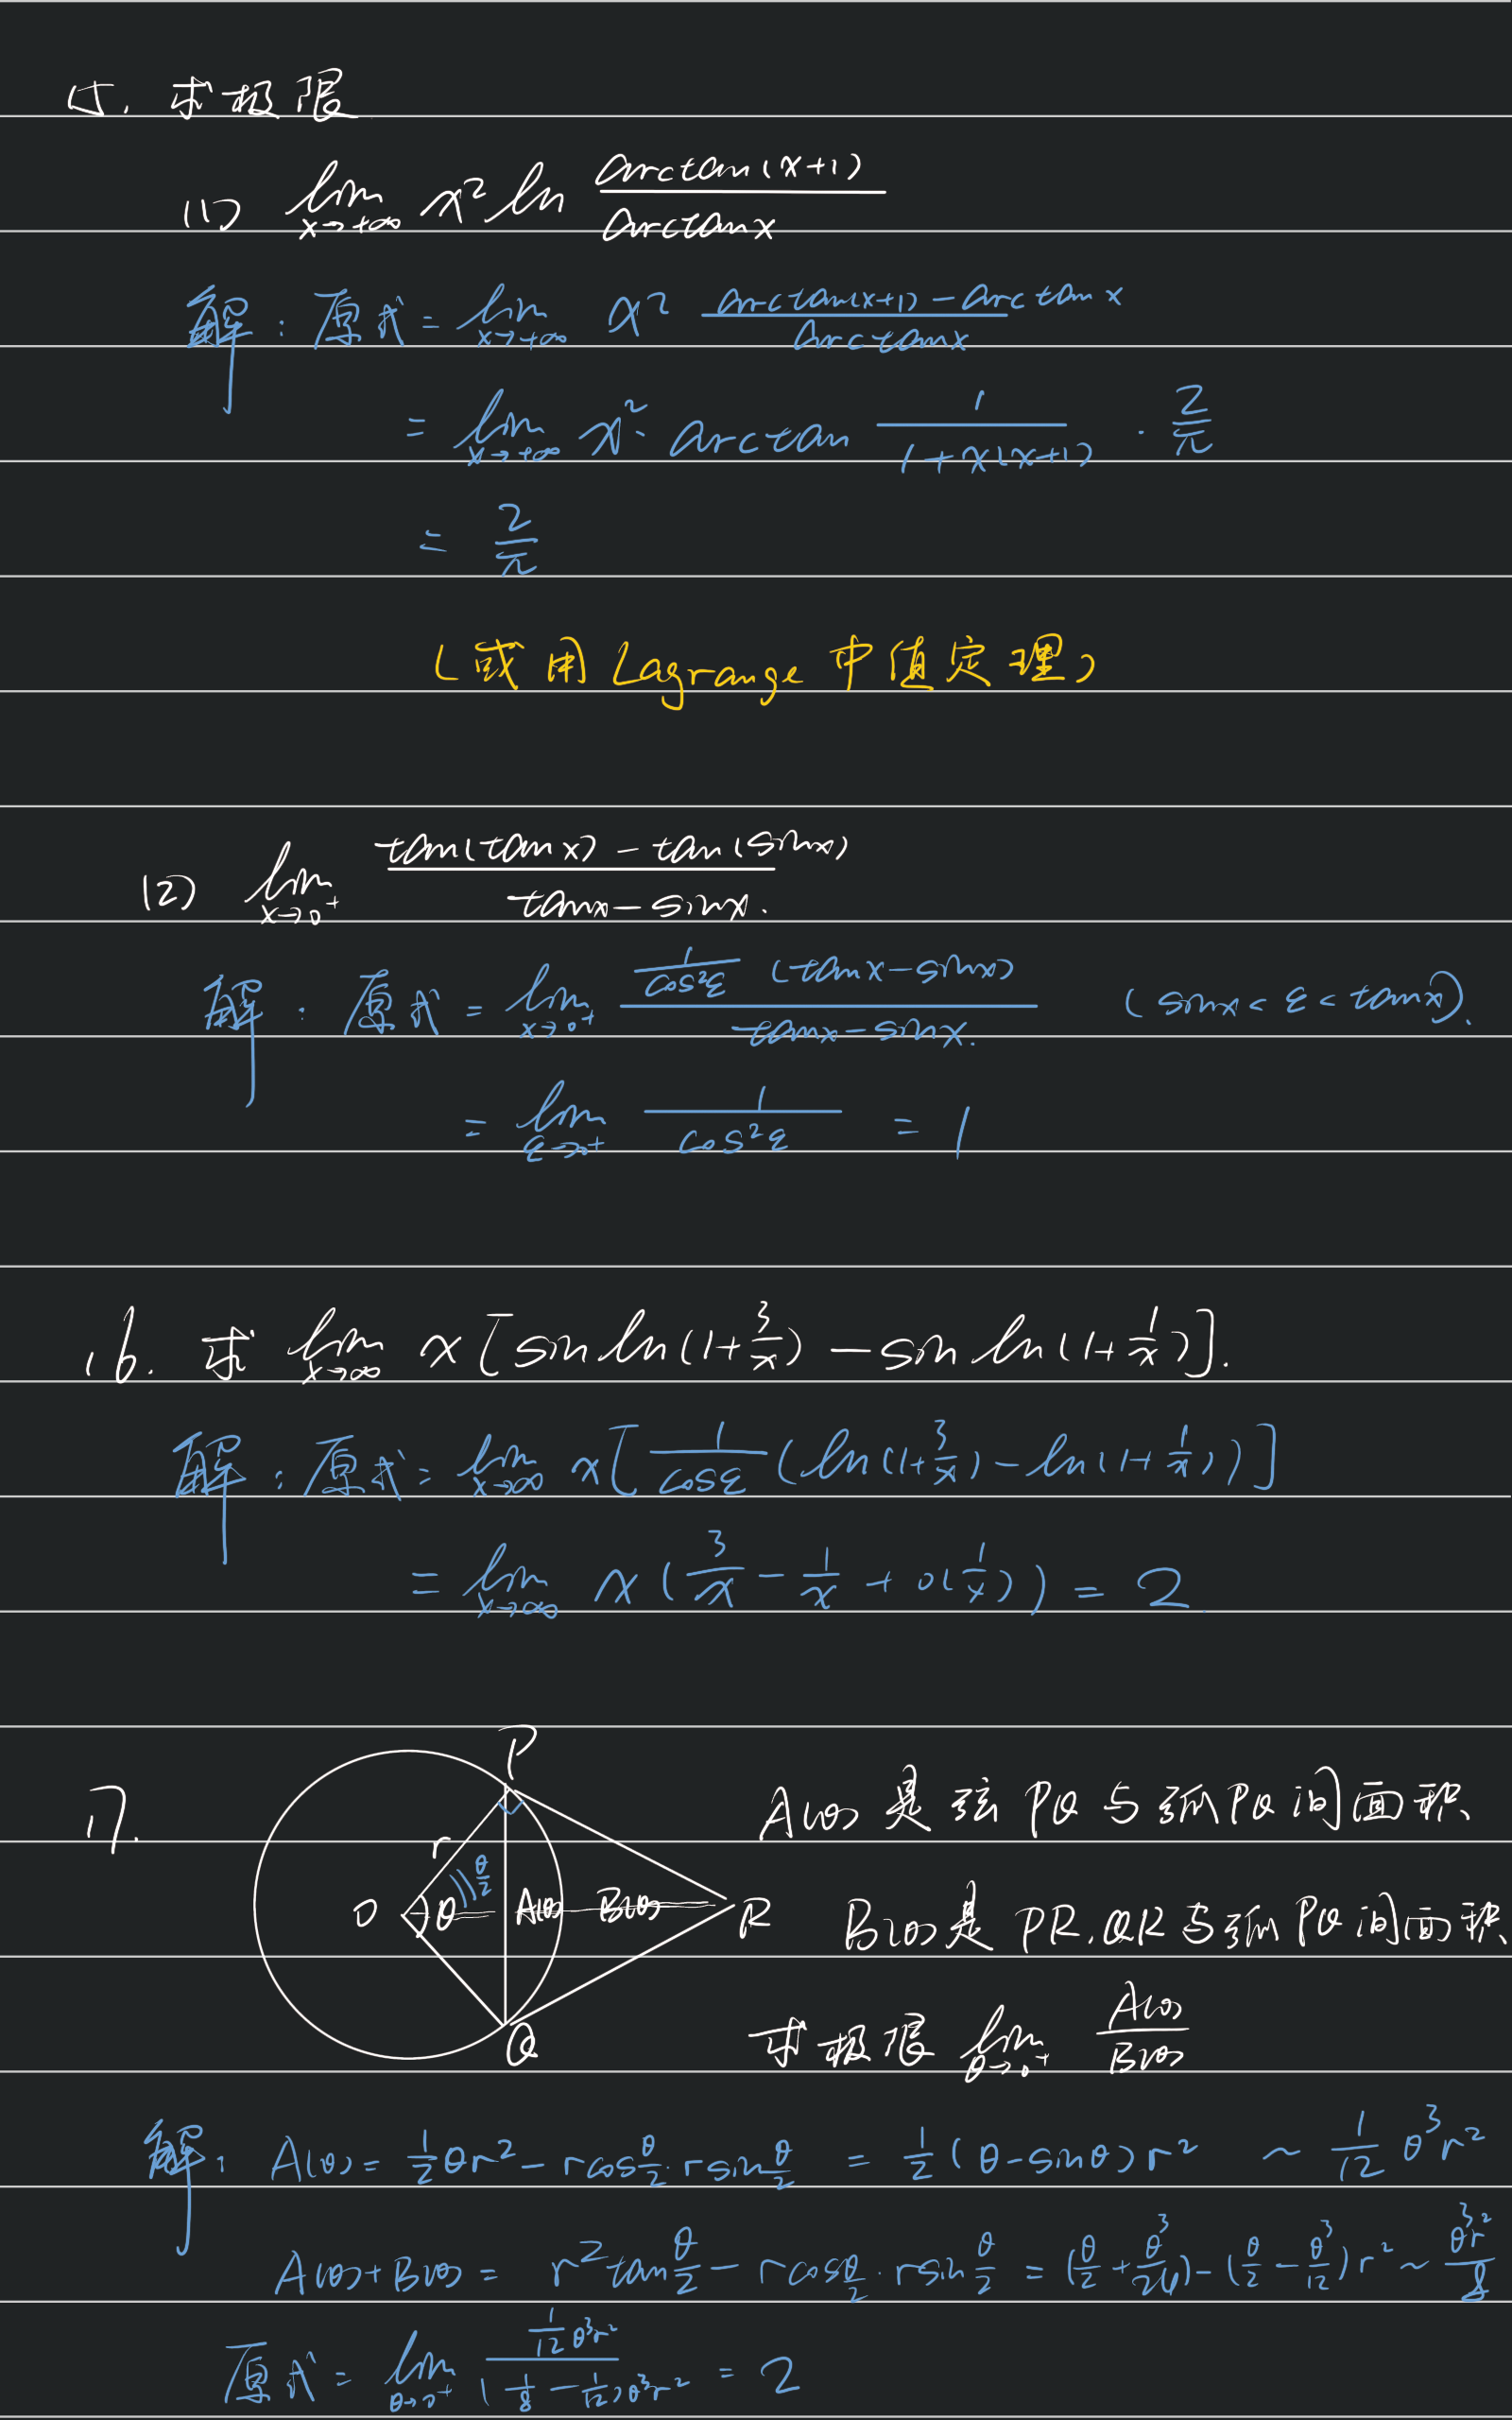 15. 求极限
(1) lim x→+∞ x² ln arctan(x+1)/arctanx
解: 原式 = lim x→+∞ x² (arctan(x+1) - arctan x)/arctanx
= lim x→+∞ x² · arctan 1/(1+x(x+1)) · 2/π
= 2/π
(或用 Lagrange 中值定理)
(2) lim x→0⁺ (tan(tan x) - tan(sinx))/(tanx - sinx).
解: 原式 = lim x→0⁺ (1/cos²ξ (tanx - sinx))/(tanx - sinx.) (sinx < ξ < tanx).
= lim ξ→0⁺ 1/cos²ξ = 1
16. 求 lim x→∞ x[sin ln(1+3/x) - sin ln(1+1/x)].
解: 原式 = lim x→∞ x[1/cosξ (ln(1+3/x) - ln(1+1/x))]
= lim x→∞ x(3/x - 1/x + o(1/x)) = 2
17.
P
r
θ/2
O θ A(θ) B(θ) R
Q
A(θ) 是弦 PQ 与弧 PQ 间面积、
B(θ) 是 PR, QR 与弧 PQ 间面积、
求极限 lim θ→0⁺ A(θ)/B(θ)
解: A(θ) = 1/2 θr² - rcos θ/2 · rsin θ/2 = 1/2 (θ - sinθ) r² ~ 1/12 θ³r²
A(θ)+B(θ) = r² tan θ/2 - rcos θ/2 · rsin θ/2 = (θ/2 + θ³/24) - (θ/2 - θ³/12) r² ~ θ³r²/8
原式 = lim θ→0⁺ (1/12 θ³r²)/((1/8 - 1/12) θ³r²) = 2